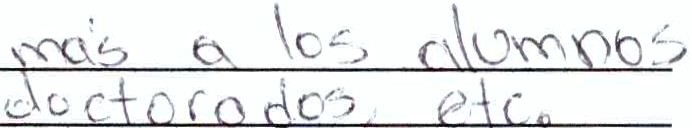 más a los alumnos
doctorados, etc.